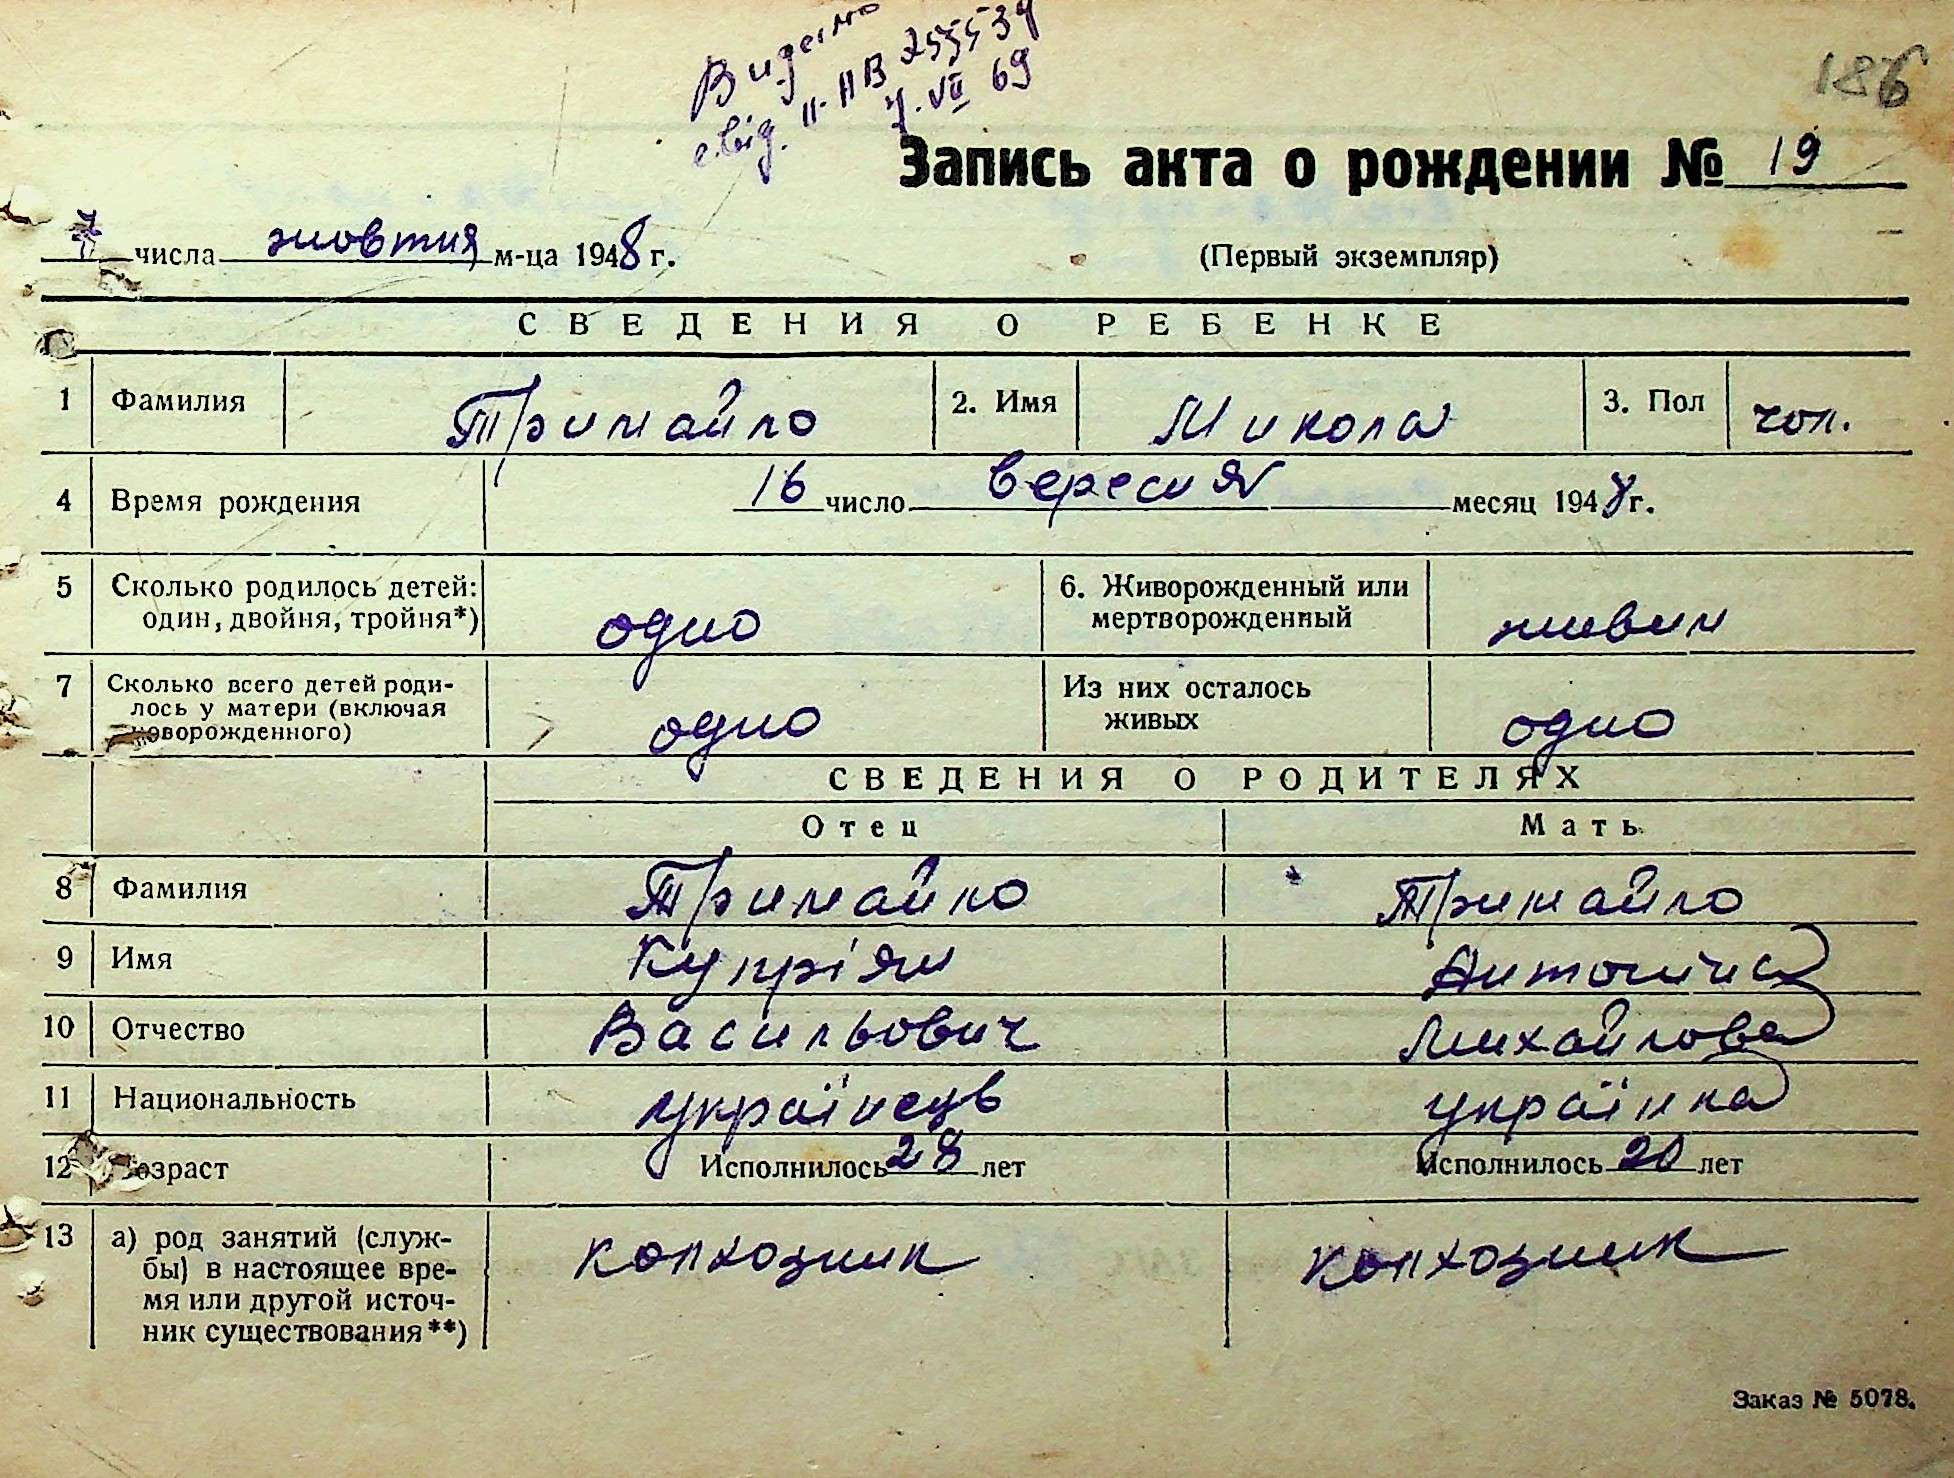 Видано
свід. II-НВ 255539
7.VII 69
186
Запись акта о рождении № 19
7 числа жовтня м-ца 1948 г.
(Первый экземпляр)
СВЕДЕНИЯ О РЕБЕНКЕ
1 Фамилия Тримайло 2. Имя Микола 3. Пол чол.
4 Время рождения 16 число вересня месяц 1948 г.
5 Сколько родилось детей: один, двойня, тройня*) одно 6. Живорожденный или мертворожденный живим
7 Сколько всего детей роди-
лось у матери (включая
новорожденного) одно Из них осталось живых одно
СВЕДЕНИЯ О РОДИТЕЛЯХ
Отец Мать
8 Фамилия Тримайло Тримайло
9 Имя Купріян Антоніна
10 Отчество Васильович Михайлова
11 Национальность українець українка
12 Возраст Исполнилось 28 лет Исполнилось 20 лет
13 а) род занятий (служ-
бы) в настоящее вре-
мя или другой источ-
ник существования**) колхозник колхозник
Заказ № 5078.